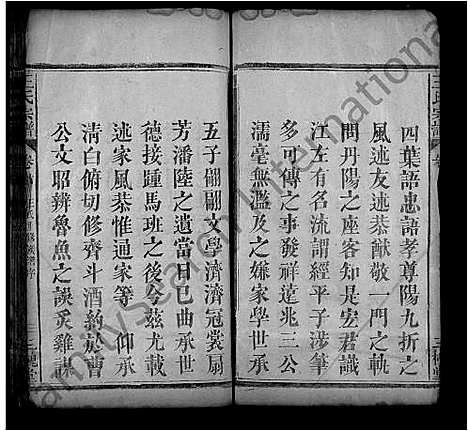 四葉語忠語孝尊陽九折之
風述友述恭猷敬一門之軌
問丹陽之座客知是宏君識
江左有名流謂經平子涉筆
多可傳之事發祥遠兆三公
濡毫無濫及之嫌家學世承
五子翩翩文學濟濟冠裳扇
芳潘陸之遺當日已曲承世
德接踵馬班之後今茲尤載
述家風恭惟通家等 仰承
清白俯切修齊斗酒約放曹
公文昭辨魯魚之誤炙雞
王氏宗譜
FamilySearch International